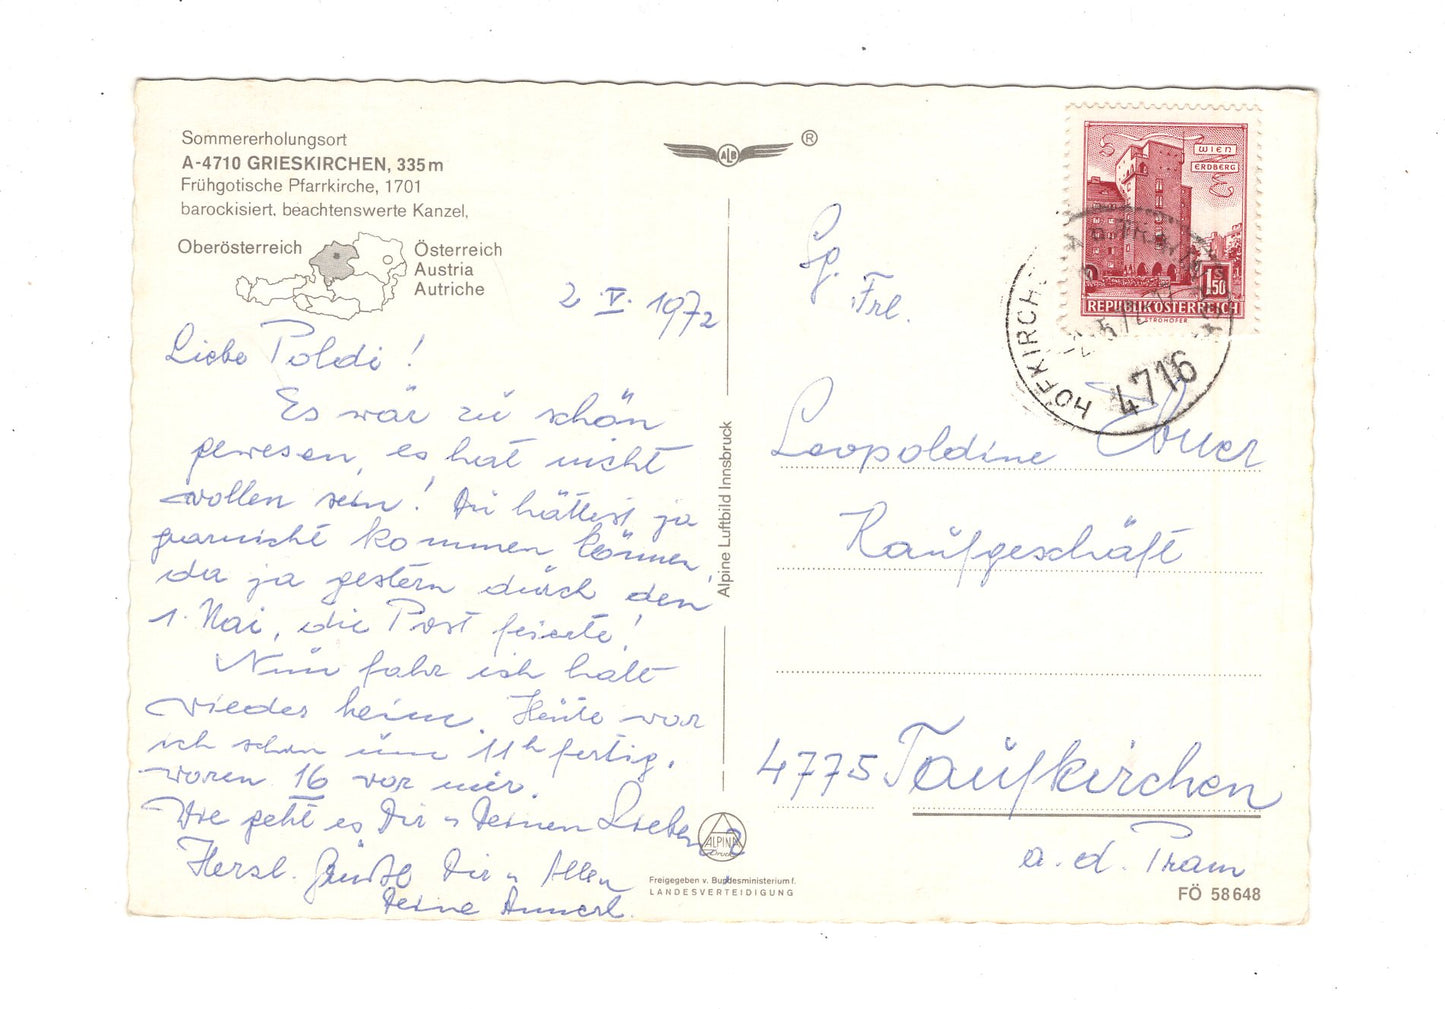 Sommererholungsort
A-4710 GRIESKIRCHEN, 335 m
Frühgotische Pfarrkirche, 1701
barockisiert, beachtenswerte Kanzel,
Oberösterreich
Österreich
Austria
Autriche
2. V. 1972
Liebe Poldi!
Es wär zu schön
gewesen, es hat nicht
wollen sein! Du hättest ja
garnicht kommen können,
da ja gestern durch den
1. Mai, die Post feierte!
Nun fahr ich halt
wieder heim. Heute war
ich schon um 11h fertig.
waren 16 vor mir.
Wie geht es Dir u Deinen Lieben?
Herzl. Grüße Dir u Allen
Deine Annerl.
ALB ®
Alpine Luftbild Innsbruck
ALPINA
Druck
Freigegeben v. Bundesministerium f.
LANDESVERTEIDIGUNG
WIEN
ERDBERG
1.50 S
REPUBLIK ÖSTERREICH
HOFKIRCHEN
4716
Frl.
Leopoldine
Kaufgeschäft
4775 Taufkirchen
a. d. Pram
FÖ 58 648